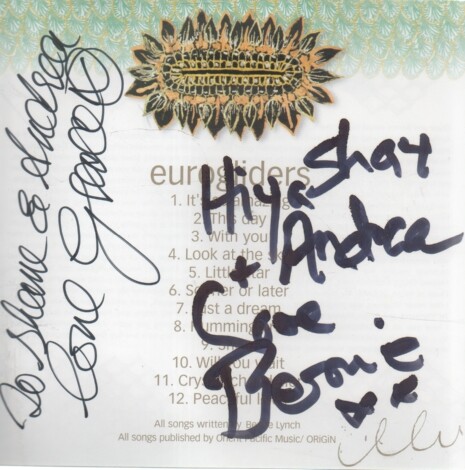 To Shane & Andrea
Love Grace
eurogliders
1. It's amazing
2. This day
3. With you
4. Look at the sky
5. Little star
6. Sooner or later
7. Just a dream
8. Humming
9.
10. Will you wait
11.
12. Peaceful
All songs written by Bernie Lynch
All songs published by Orient Pacific Music/ ORiGiN
Hiya Shay
+ Andrea
Love
Bernie
xx